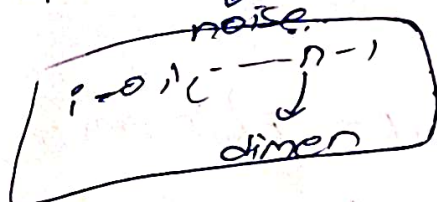 noise
i=0,1,---n-1
↓
dimen